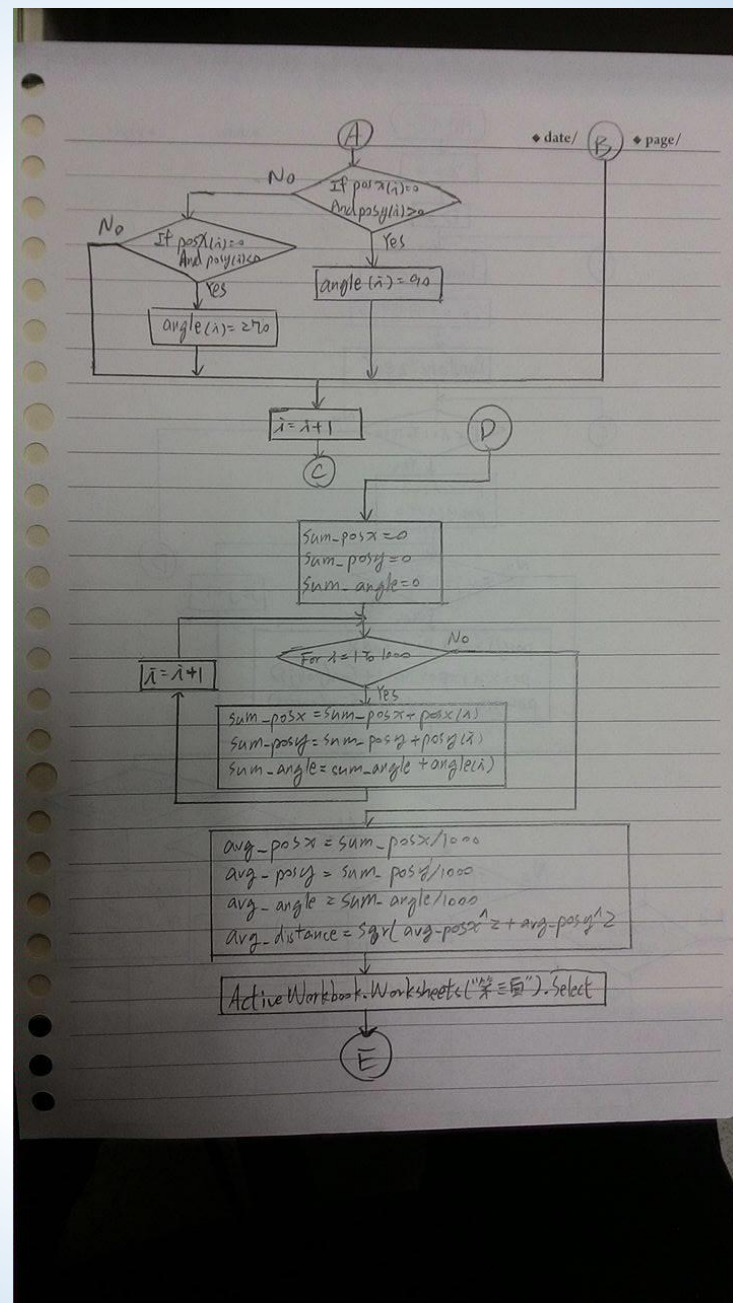 A
◆ date/ B ◆ page/
No
If posx(i)=0
And posy(i)>0
No
If posx(i)=0
And posy(i)<0
Yes
Yes
angle(i)=90
angle(i)=270
i=i+1
D
C
sum_posx=0
sum_posy=0
sum_angle=0
No
For i=1 to 1000
i=i+1
Yes
sum_posx=sum_posx+posx(i)
sum_posy=sum_posy+posy(i)
sum_angle=sum_angle+angle(i)
avg_posx=sum_posx/1000
avg_posy=sum_posy/1000
avg_angle=sum_angle/1000
avg_distance=Sqr(avg_posx^2+avg_posy^2
ActiveWorkbook.Worksheets("第三頁").Select
E